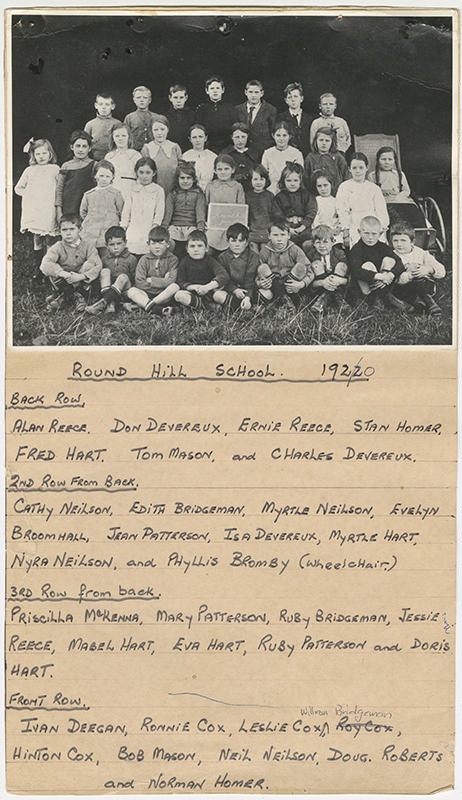 ROUND HILL SCHOOL. 192220
BACK ROW.
ALAN REECE. DON DEVEREUX, ERNIE REECE, STAN HOMER,
FRED HART. TOM MASON, and CHARLES DEVEREUX.
2ND ROW FROM BACK.
CATHY NEILSON, EDITH BRIDGEMAN, MYRTLE NEILSON, EVELYN
BROOMHALL, JEAN PATTERSON, ISA DEVEREUX, MYRTLE HART,
NYRA NEILSON, and PHYLLIS BROMBY (WHEELCHAIR.)
3RD ROW from back.
PRISCILLA McKENNA, MARY PATTERSON, RUBY BRIDGEMAN, JESSIE
REECE, MABEL HART, EVA HART, RUBY PATTERSON and DORIS
HART.
FRONT ROW.
William Bridgeman
IVAN DEEGAN, RONNIE COX, LESLIE COX, ROY COX,
HINTON COX, BOB MASON, NEIL NEILSON, DOUG. ROBERTS
and NORMAN HOMER.